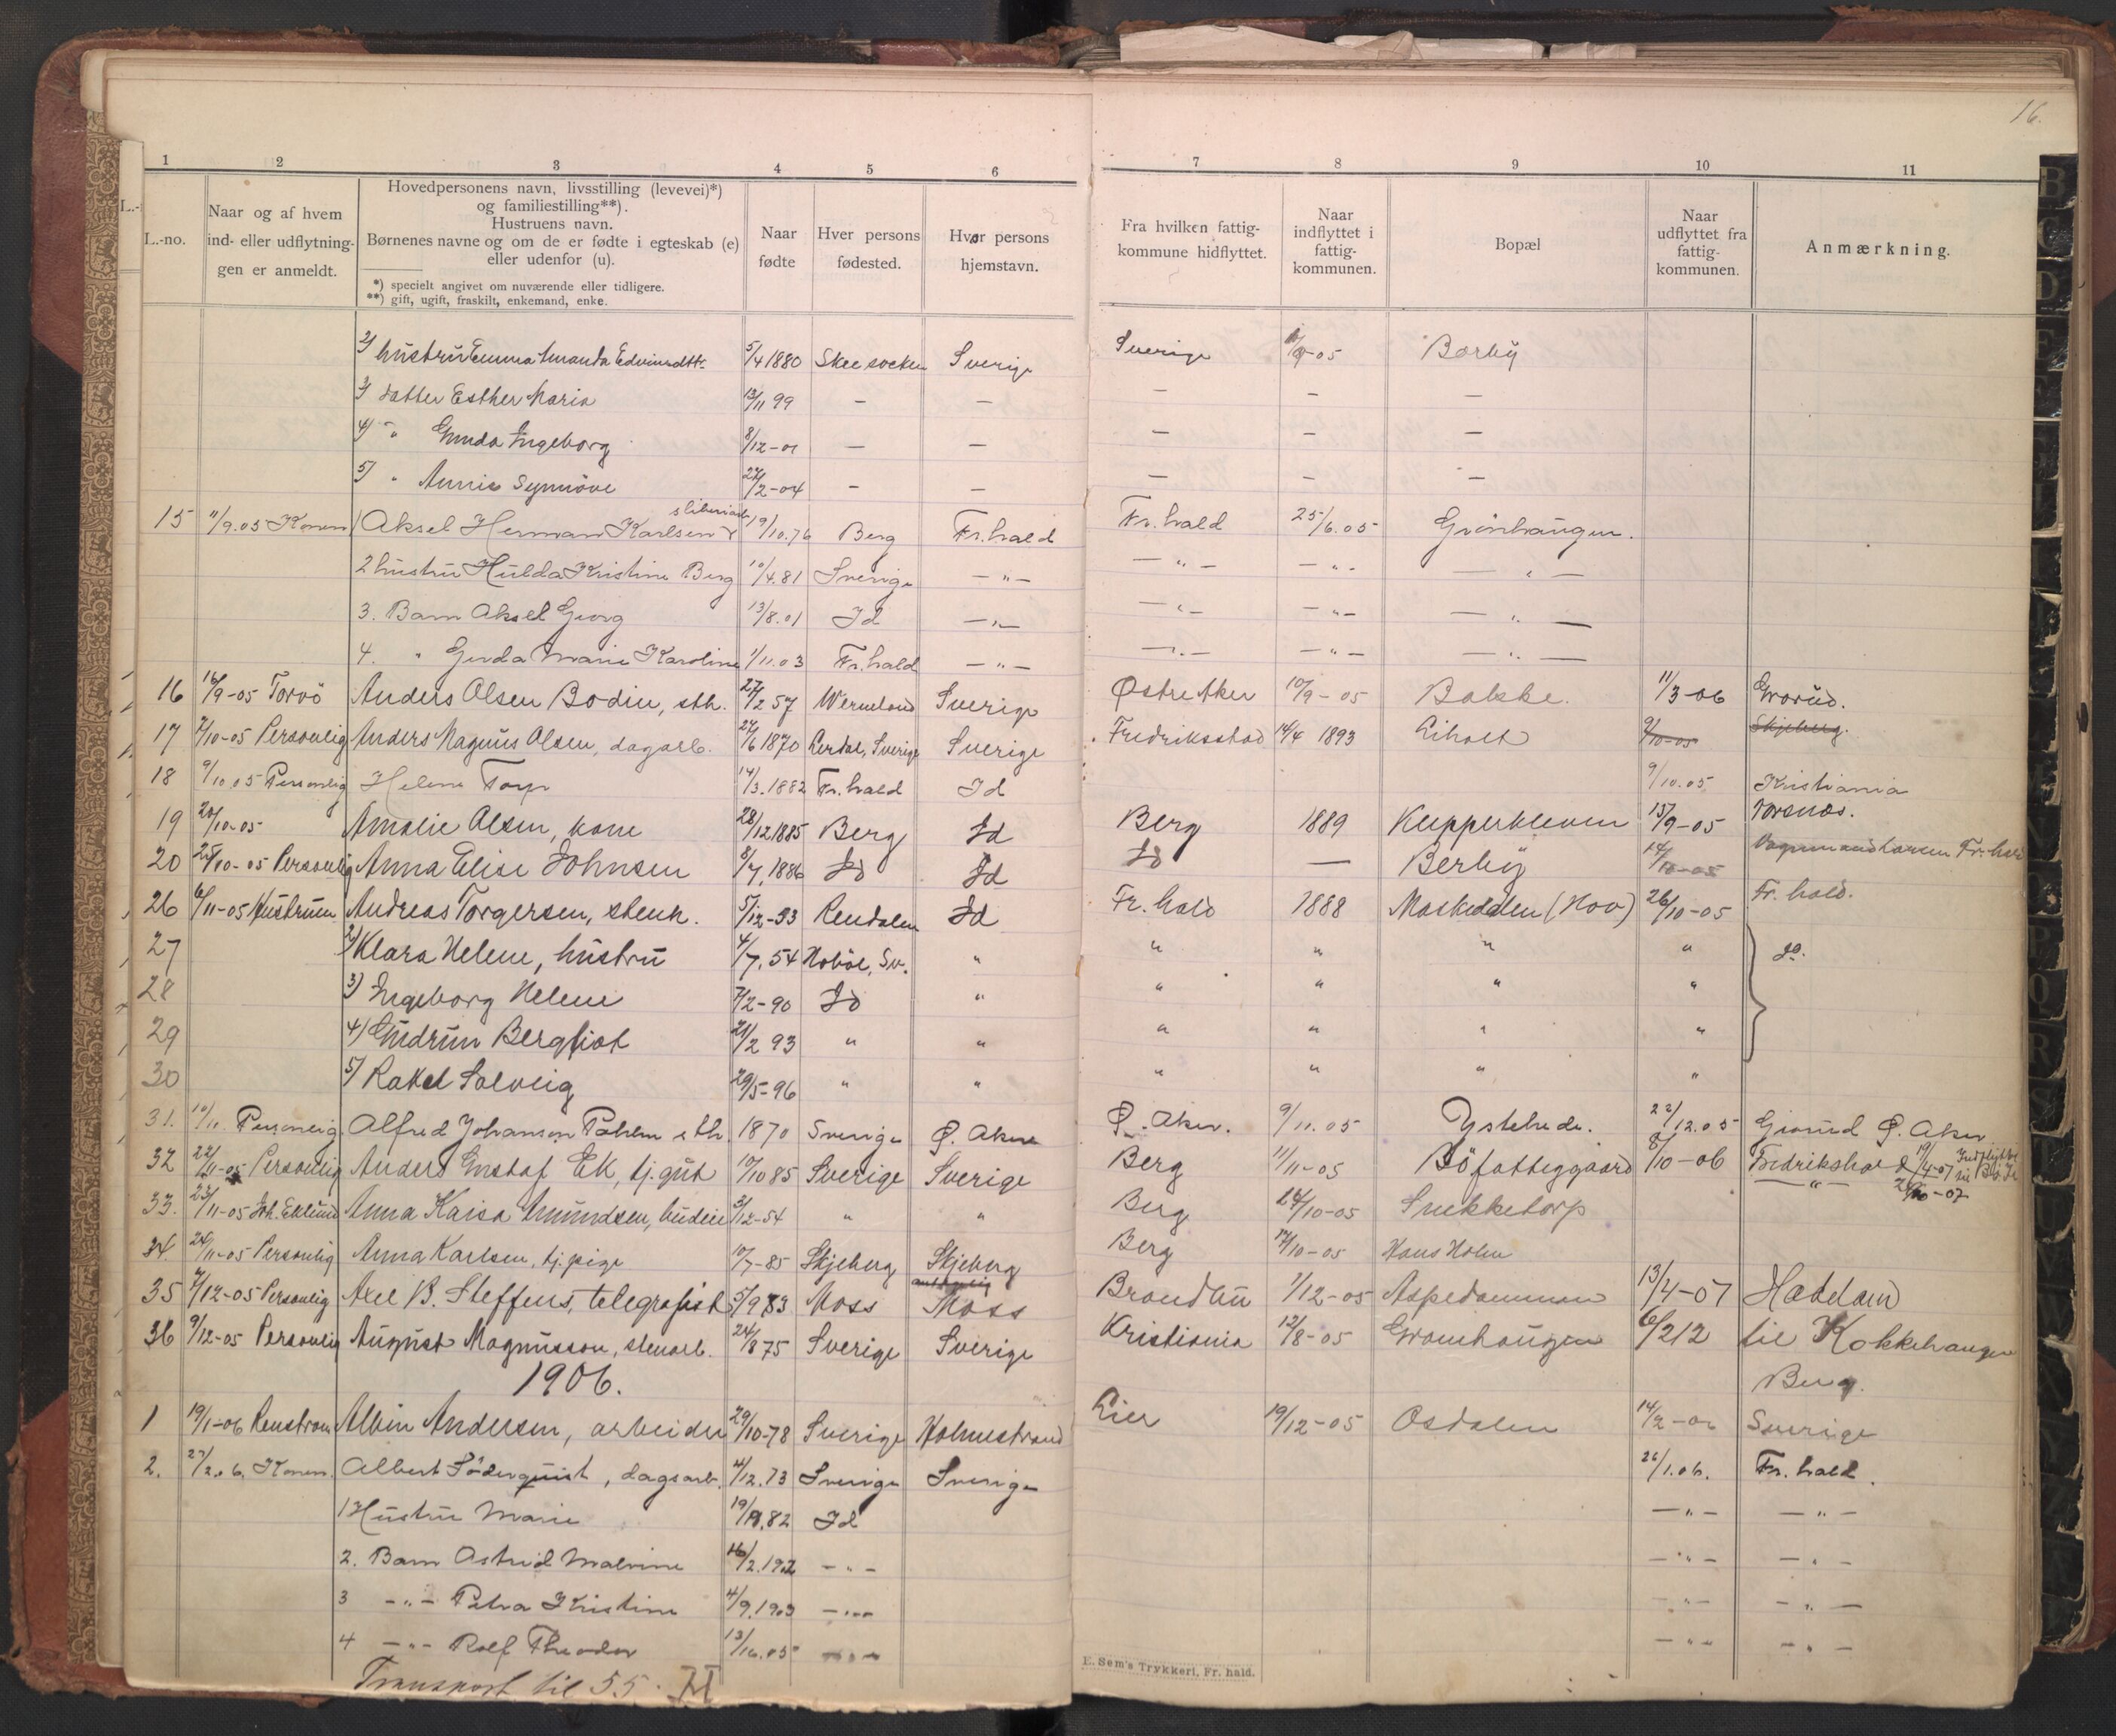 16.
1 2 3 4 5 6 7 8 9 10 11
L.-no.
Naar og af hvem ind- eller udflytningen er anmeldt.
Hovedpersonens navn, livsstilling (levevei)*) og familiestilling**).
Hustruens navn.
Børnenes navne og om de er fødte i egteskab (e) eller udenfor (u).
*) specielt angivet om nuværende eller tidligere.
**) gift, ugift, fraskilt, enkemand, enke.
Naar fødte
Hver persons fødested.
Hvor persons hjemstavn.
Fra hvilken fattigkommune hidflyttet.
Naar indflyttet i fattigkommunen.
Bopæl
Naar udflyttet fra fattigkommunen.
Anmærkning.
2) hustru Emma Amanda Edvinsdttr. 5/4 1880 Skee socken Sverige Sverige /9-05 Borby
3) datter Esther Maria 13/11 99 — — — — —
4) " Gunda Ingeborg 8/12-01 — — — — —
5) " Annie Synnöve 27/2-04 — — — — —
15 11/9.05 Konen 1 Aksel Herman Karlsen sliberiarb. 19/10.76 Berg Fr.hald Fr.hald 25/6.05 Grönhaugen.
2 hustru Hulda Kristine Berg 10/4.81 Sverige — " — — " — — " — — " —
3. Barn Aksel Georg 13/8.01 Id — " — — " — — " — — " —
4. " Gerda Marie Karoline 1/11.03 Fr.hald — " — — " — — " — — " —
16 16/9-05 Torvö Anders Olsen Bodin, sth. 27/2 57 Wermland Sverige Østre Aker 10/9-05 Bakke. 11/3-06 Grorud.
17 7/10-05 Personlig Anders Magnus Olsen, dagarb. 24/6 1870 Lerdal, Sverige Sverige Fredriksstad 14/4 1893 Liholt 9/10-05 Skjeberg.
18 9/10 05 Personlig Helene Torp 14/3.1882 Fr.hald Id 9/10.05 Kristiania
19 20/10-05 Amalie Olsen, kone 28/12 1885 Berg Id Berg 1889 Kupperkleven 15/9-05 Torsnæs.
20 25/10-05 Personlig Anna Elise Johnsen 8/7.1886 Id Id Id — Berby 14/10-05 Vognmand Larsen Fr.hald
26 6/11-05 Hustruen Andreas Torgersen, stenh. 5/12-53 Rendalen Id Fr. hald 1888 Maskedalen (Hov) 26/10-05 Fr. hald.
27 2) Klara Helene, hustru 4/7.54 Hoböl, Sv. " " " " " do.
28 3) Ingeborg Helene 7/2-90 Id " " " " "
29 4) Gudrun Bergliot 21/2 93 " " " " " "
30 5) Rakel Solveig 29/5-96 " " " " " "
31. 10/11 Personlig Alfred Johanson Pahlm sth. 1870 Sverige Ø. Aker Ø. Aker. 9/11.05 Ystehede. 22/12.05 Grorud Ø. Aker
32 22/11-05 Personlig Anders Gustaf Ek, tj.gut 10/10 85 Sverige Sverige Berg 11/11-05 Bö fattiggaard 8/10-06 Fredrikshald 19/4-07 Indflyttet til Bö Id
33. 23/11-05 Joh. Eklund Anna Kaisa Amundsen, budeie 3/12-54 " " Berg 24/10-05 Snekketorp — " — 26/10-07
34. 24/11-05 Personlig Anna Karlsen, tj.pige 10/7-85 Skjeberg Skjeberg Berg 14/10-05 Hans Holm
35 7/12-05 Personlig Axel B. Steffens, telegrafist 5/9 83 Moss antagelig Moss Brandbu 1/12-05 Aspedammen 13/4-07 Hadeland
36 9/12-05 Personlig August Magnusson, stenarb. 24/8 75 Sverige Sverige Kristiania 12/8-05 Grönhaugen 6/2 12 til Kokkehaugen Berg.
1906.
1 19/1-06 Renström Albin Andersen, arbeider 29/10-78 Sverige Holmestrand Lier 19/12-05 Osdalen 14/2-06 Sverige
2. 27/2.06. Konen. Albert Söderquist, dagsarb. 4/12.73 Sverige Sverige 26/1.06. Fr. hald.
1 Hustru Marie 19/ .82 Id — " — — " —
2. Barn Astrid Malvine 16/2.1902 — " — — " — — " —
3 — " — Petra Kristine 4/9.1903 — " — — " — — " —
4 — " — Rolf Theodor 13/10.05 — " — — " — — " —
Transport til 55.
E. Sem's Trykkeri, Fr. hald.